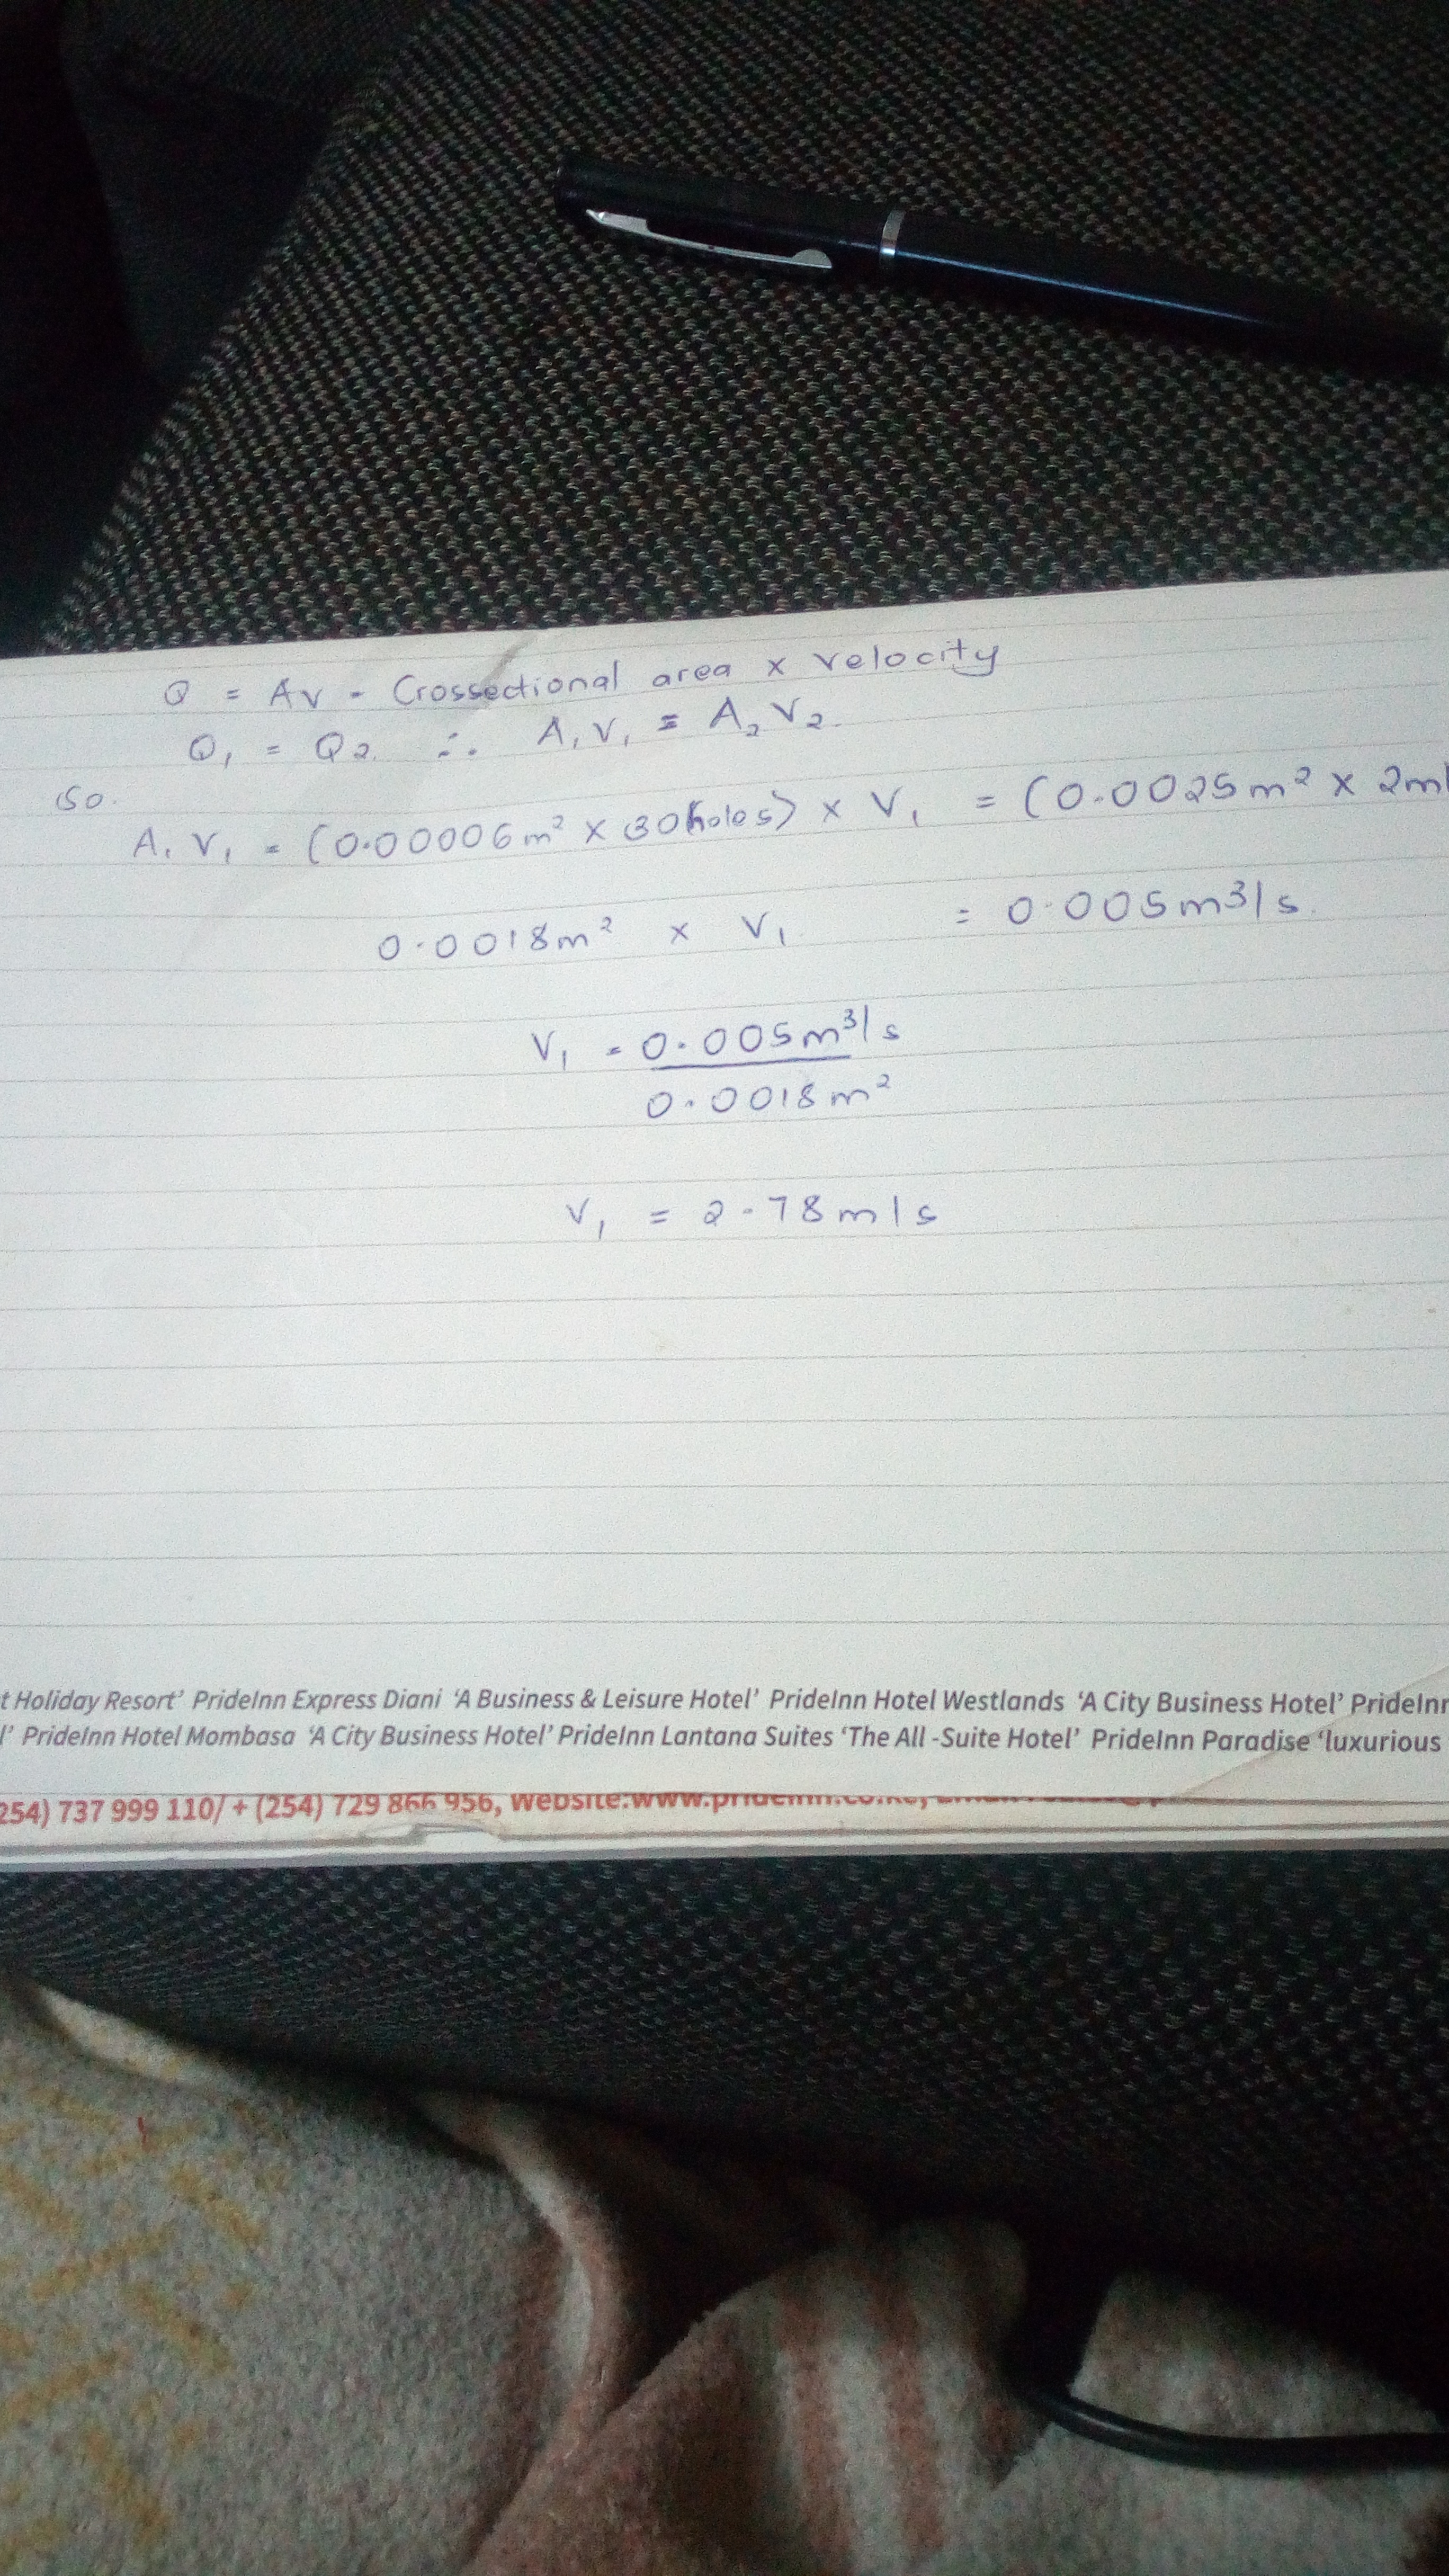 Q = AV - Crossectional area x velocity
Q₁ = Q₂. ∴ A₁V₁ = A₂V₂.
So.
A₁V₁ = (0.00006m² x 30holes) x V₁ = (0.0025m² x 2m/
0.0018m² x V₁ = 0.005m³/s.
V₁ = 0.005m³/s
0.0018m²
V₁ = 2.78m/s
t Holiday Resort’ PrideInn Express Diani ‘A Business & Leisure Hotel’ PrideInn Hotel Westlands ‘A City Business Hotel’ PrideInn
l’ PrideInn Hotel Mombasa ‘A City Business Hotel’ PrideInn Lantana Suites ‘The All -Suite Hotel’ PrideInn Paradise ‘luxurious
254) 737 999 110/ + (254) 729 866 956, Website:www.prideinn.co.ke,